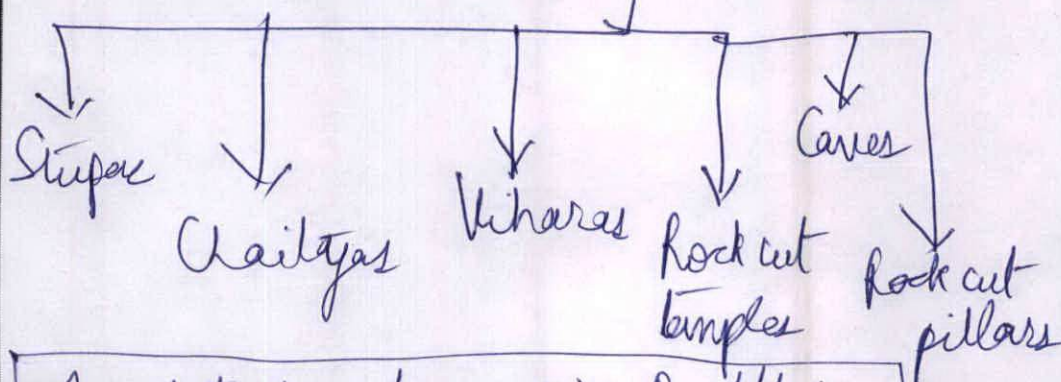 Stupas
Chaityas
Viharas
Rock cut
temples
Caves
Rock cut
pillars